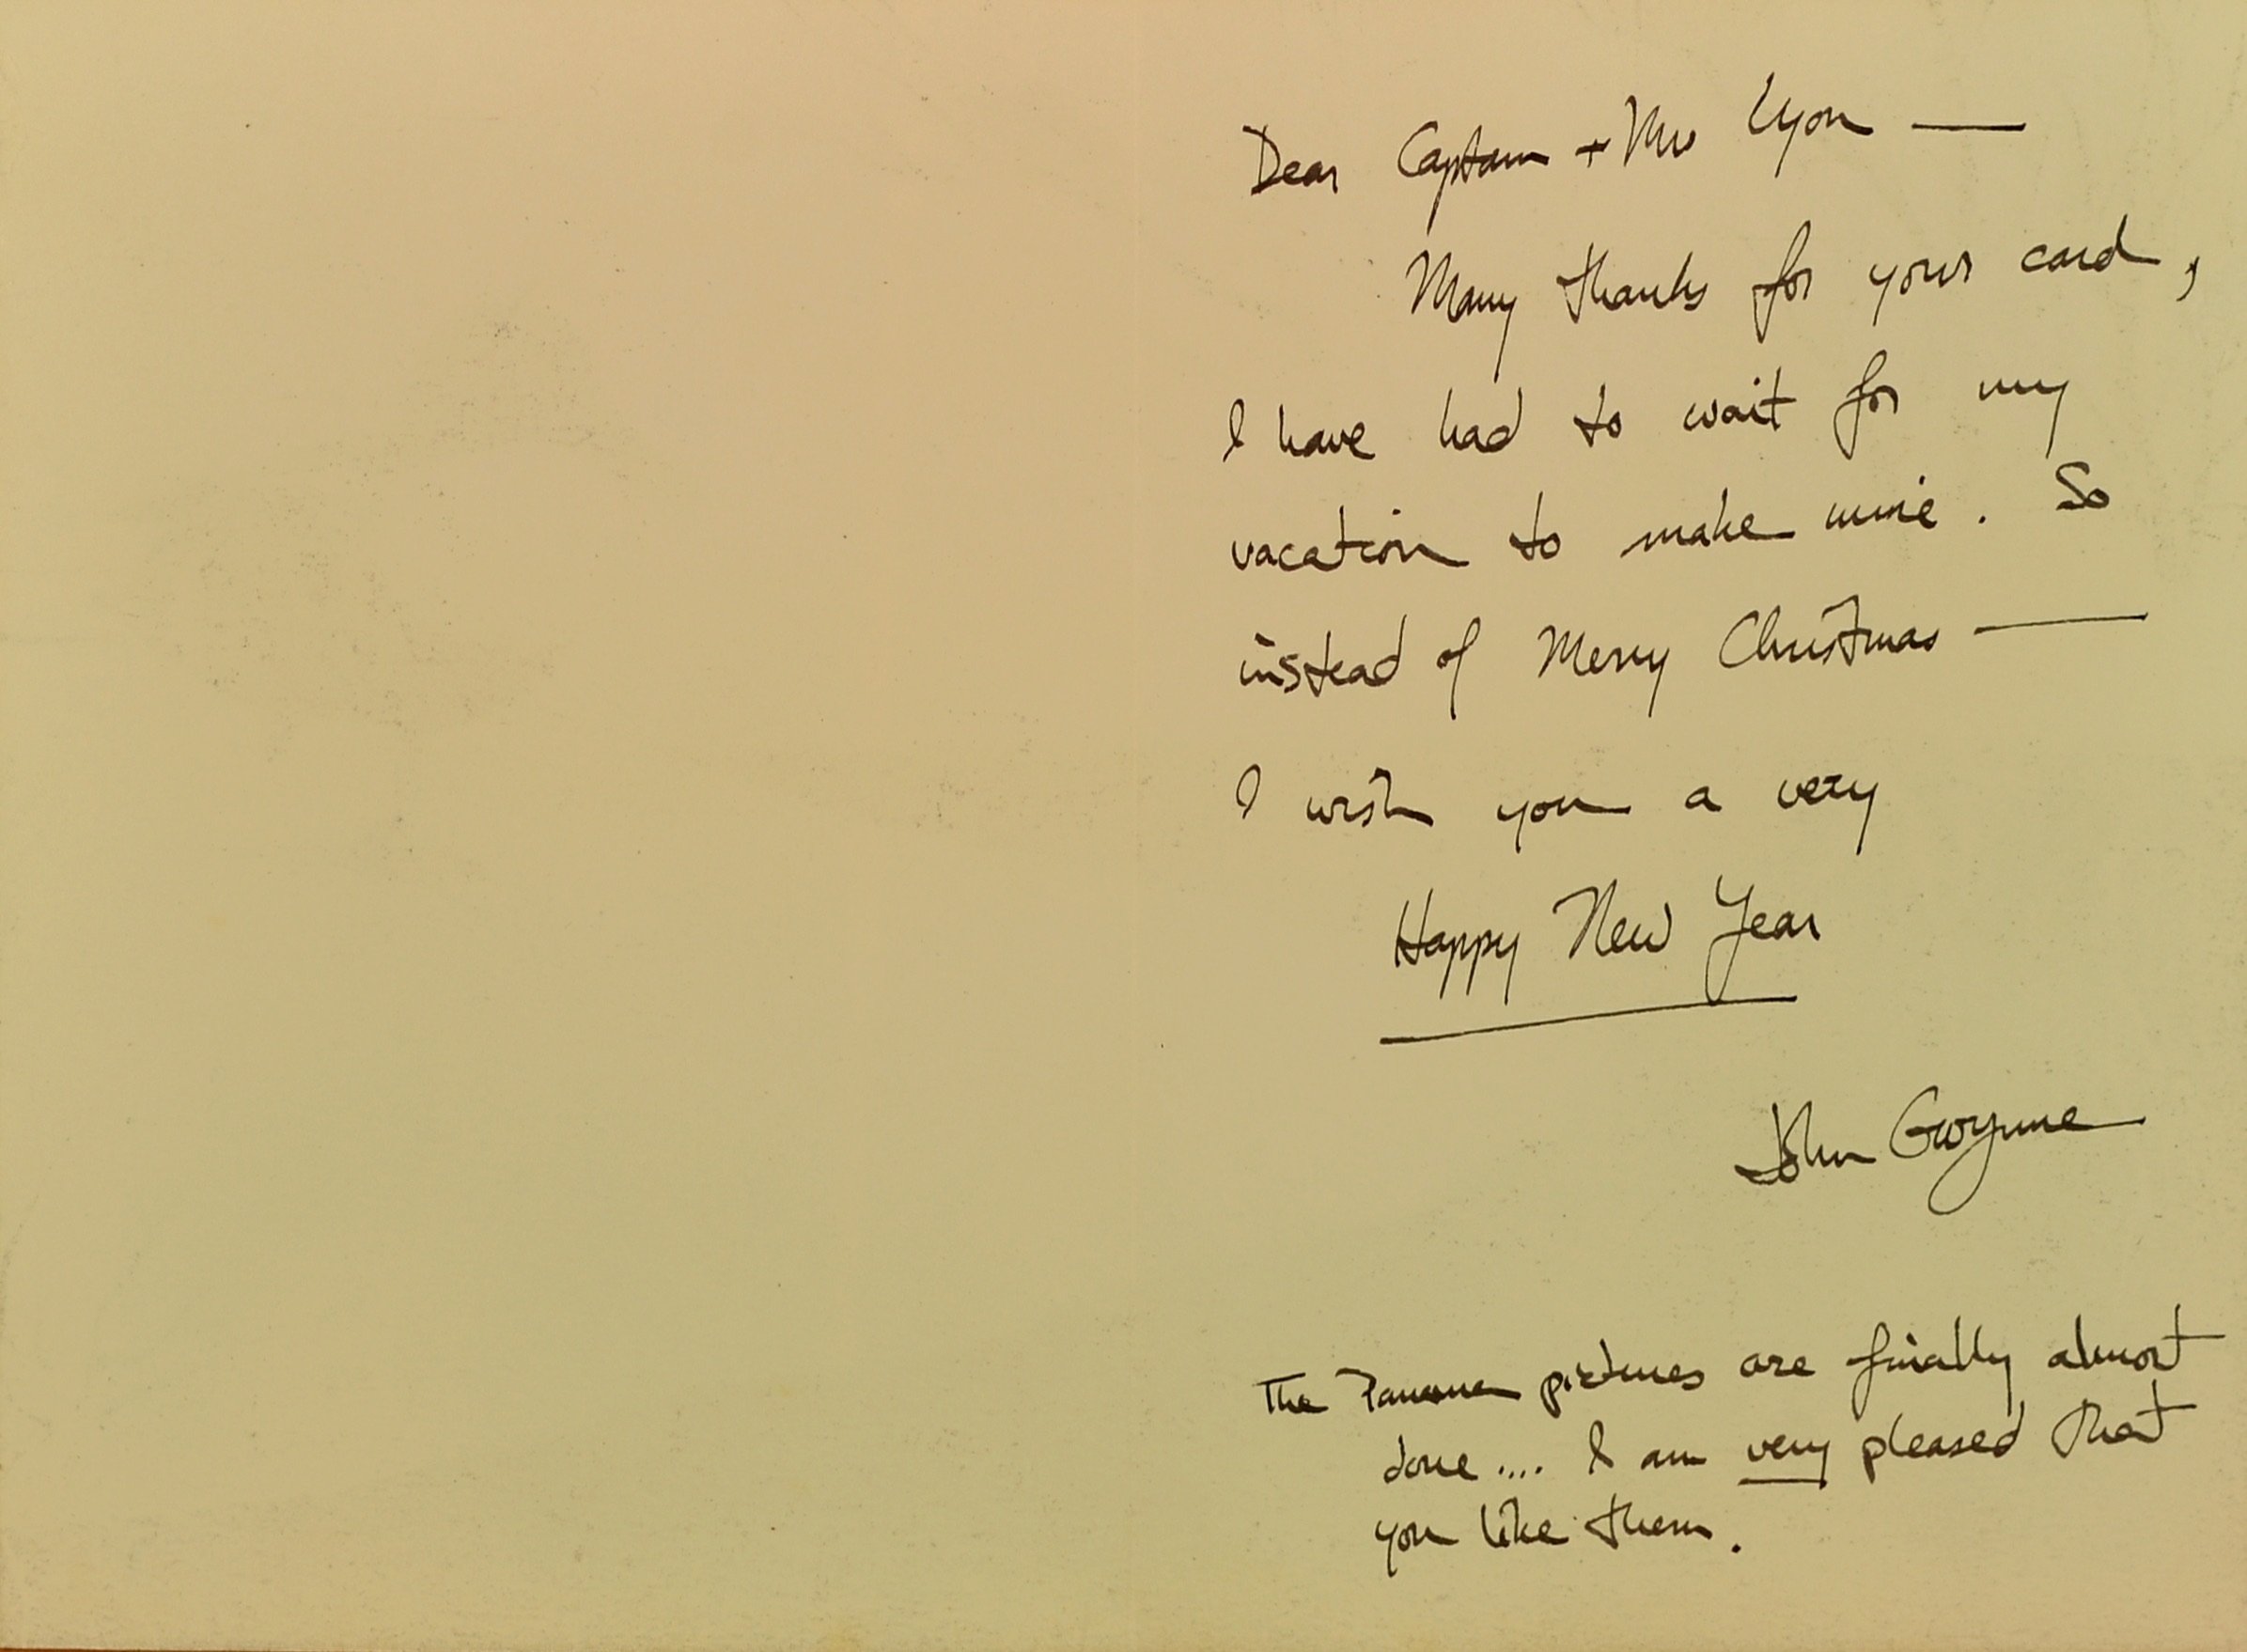 Dear Captain + Mrs Lyon —
Many thanks for your card,
I have had to wait for my
vacation to make mine. So
instead of Merry Christmas —
I wish you a very
Happy New Year
John Gwynne
The Panama pictures are finally almost
done.... I am very pleased that
you like them.